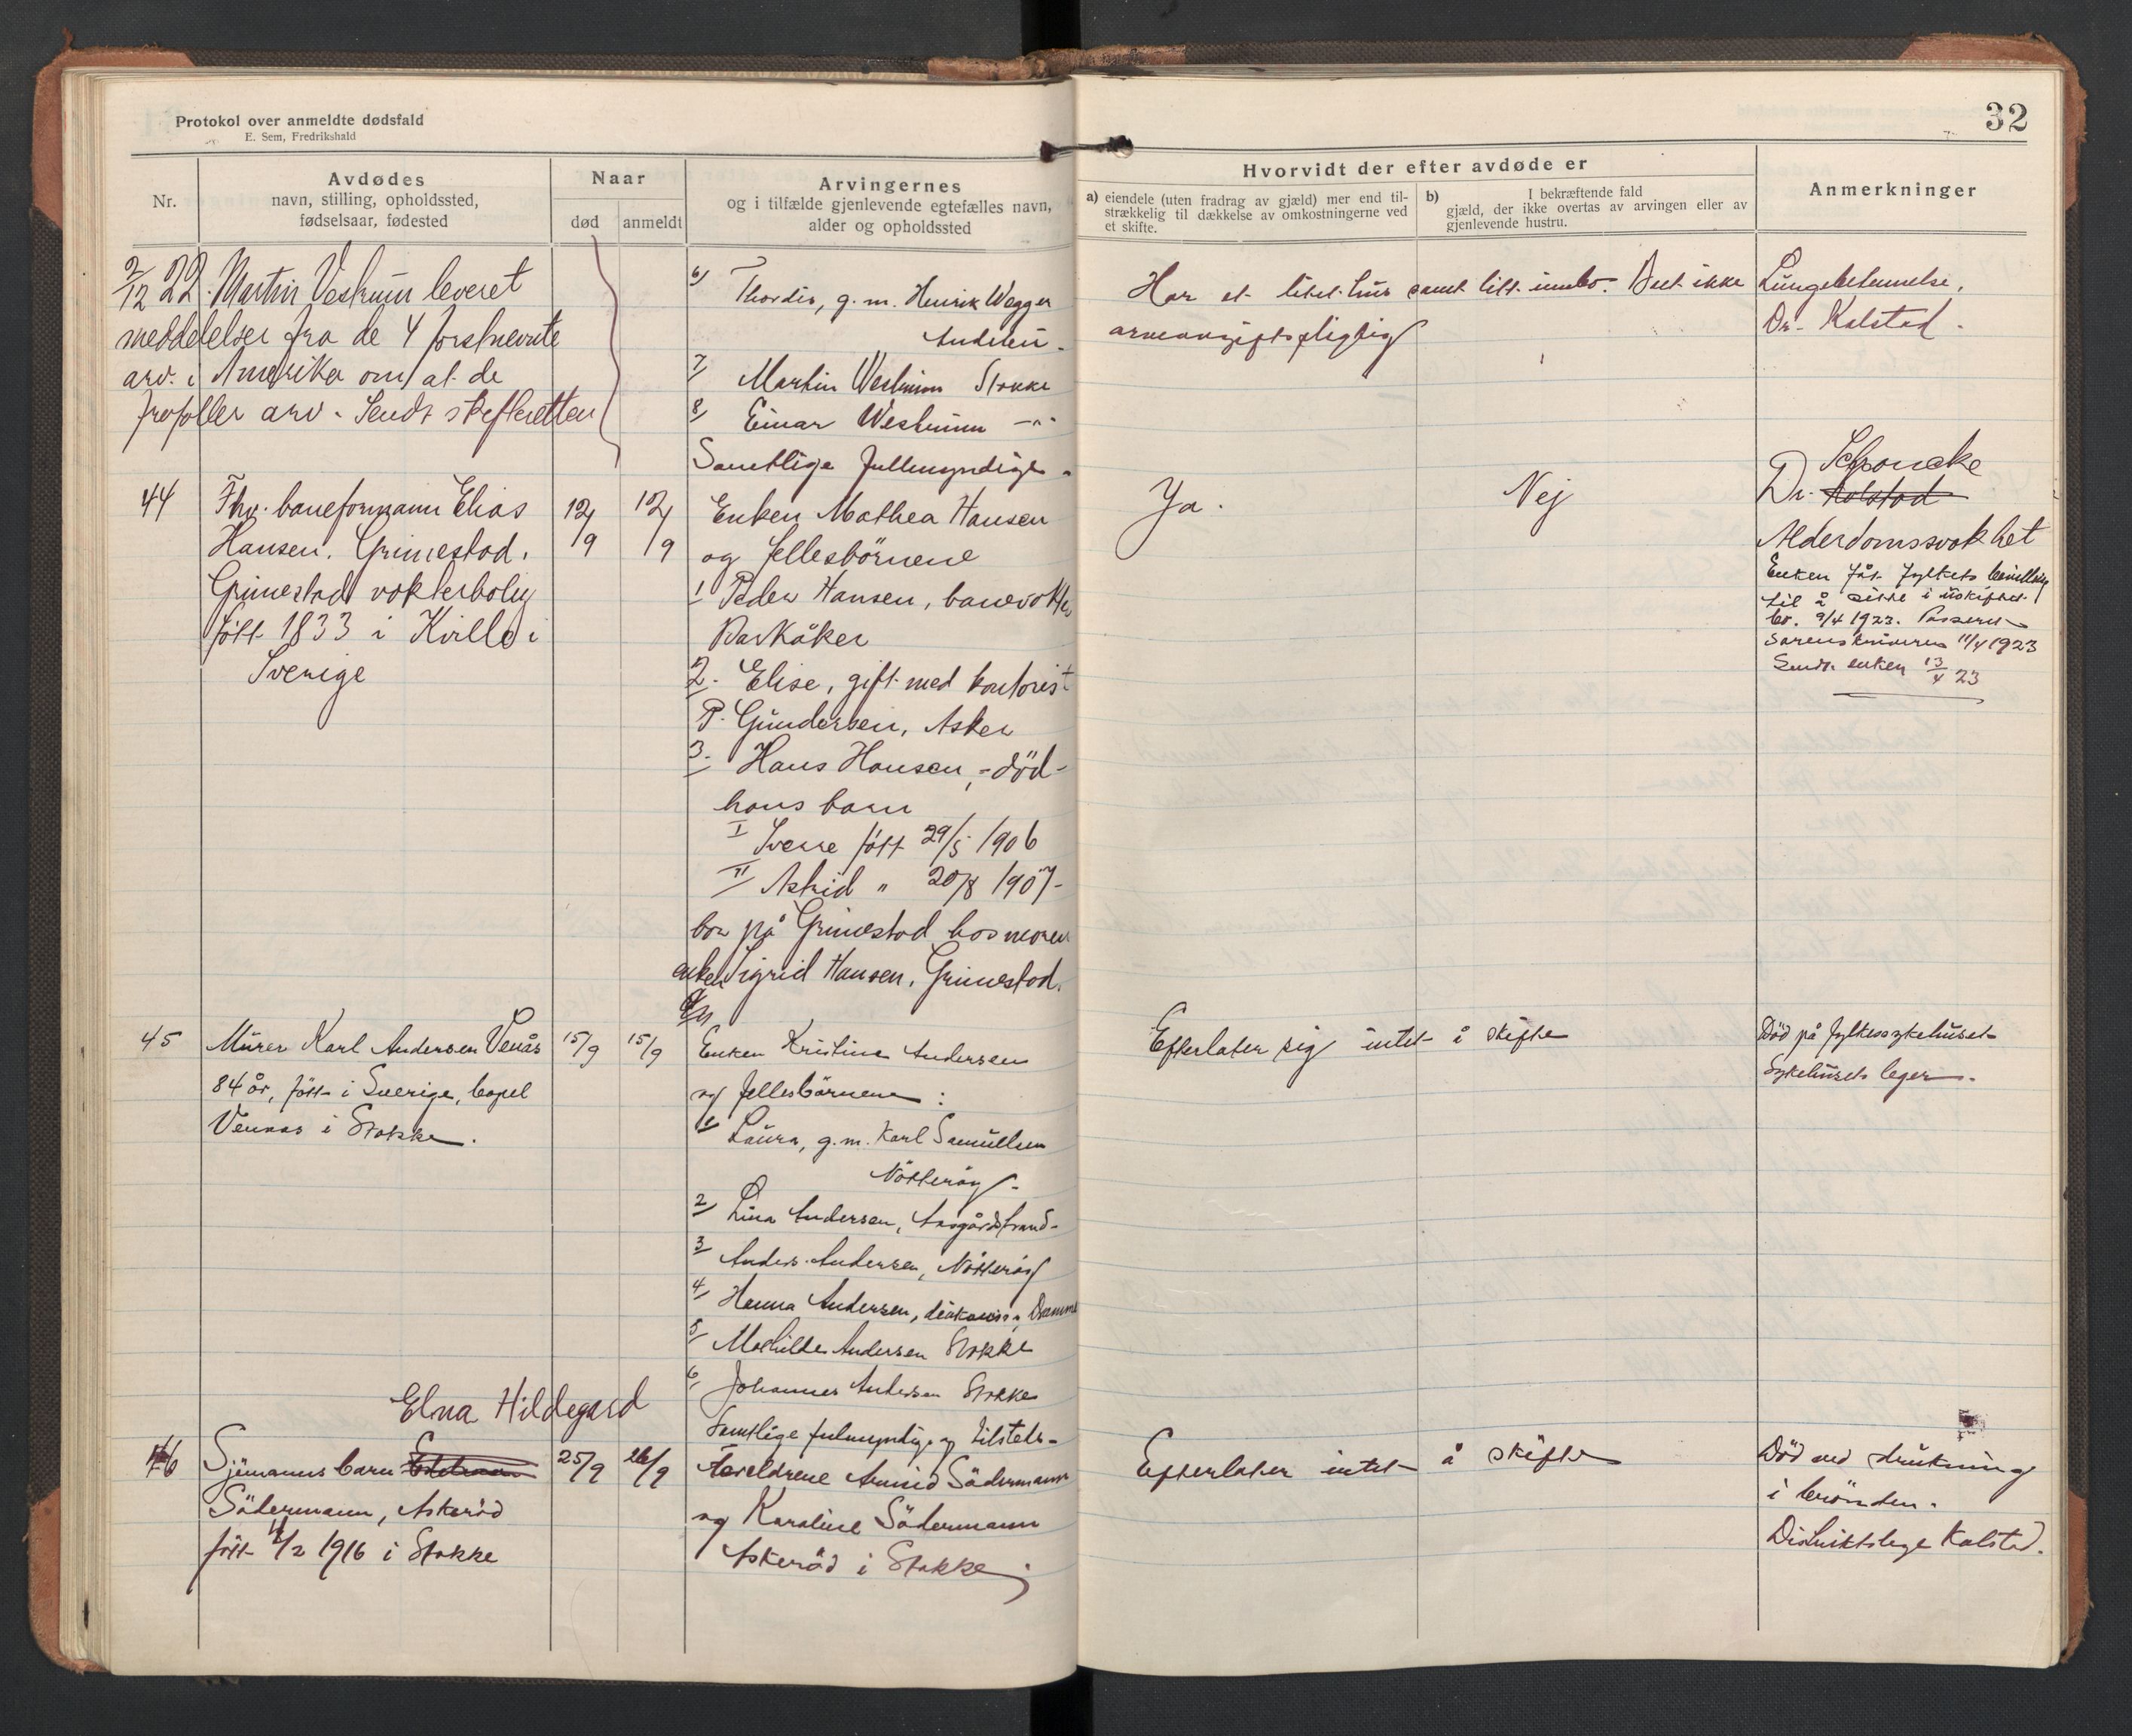 Protokol over anmeldte dødsfald
E. Sem, Fredrikshald
32
Nr.
Avdødes
navn, stilling, opholdssted,
fødselsaar, fødested
Naar
død
anmeldt
Arvingernes
og i tilfælde gjenlevende egtefælles navn,
alder og opholdssted
Hvorvidt der efter avdøde er
a) eiendele (uten fradrag av gjæld) mer end til-
strækkelig til dækkelse av omkostningerne ved
et skifte.
b) I bekræftende fald
gjæld, der ikke overtas av arvingen eller av
gjenlevende hustru.
Anmerkninger
2/12 22. Martin Vestrum leveret
meddelelser fra de 4 førstnevnte
arv. i Amerika om at de
frafaller arv. Sendt skifteretten
6) Thordis, g. m. Henrik Wegger
Andersen.
7) Martin Westrum Stokke
8) Einar Westrum -"-
Samtlige fullmyndige.
Har et litet hus samt litt innbo. Boet ikke
arveavgiftspligtig
Lungebetennelse.
Dr. Kalstad.
44
Fhv. baneformann Elias
Hansen, Grimestad.
Grimestad vokterbolig
født 1833 i Kville i
Sverige
12/9
12/9
Enken Mathea Hansen
og fellesbörnene
1 Peder Hansen, banevokter
Barkåker
2. Elise, gift med kontorist
P. Gundersen, Asker
3. Hans Hansen, - död -
hans barn
I Sverre født 29/5 1906
II Astrid " 20/8 1907 -
bor på Grimestad hos moren
enken Sigrid Hansen, Grimestad.
Ja.
Nej
Schponcke
Dr. Kalstad
Alderdomssvakhet
Enken fåt fylkets bevilling
til å sitte i uskiftet
bo. 9/4 1923. Passeret
sorenskriveren 11/4 1923
Sendt enken 13/4 23
45
Murer Karl Andersen Venås
84 år, født i Sverige, bopel
Vennas i Stokke.
15/9
15/9
Enken Kristine Andersen
og fellesbörnene:
1 Laura, g. m. Karl Samuelsen
Nötteröy.
2 Lina Andersen, Aasgårdstrand.
3 Anders Andersen, Nötteröy
4 Hanna Andersen, diakonisse, Dramme
5 Mathilde Andersen Stokke
6 Johannes Andersen Stokke
Samtlige fulmyndige og tilstede.
Efterlater sig intet å skifte
Död på fylkessykehuset
Sykehusets leger.
Elna Hildegard
46
Sjömanns barn
Södermann, Askeröd
född 4/2 1916 i Stokke
25/9
26/9
Foreldrene Arvid Södermann
og Karoline Södermann
Askeröd i Stokke
Efterlater intet å skifte
Död ved drukning
i brönden.
Distriktslege Kalstad.